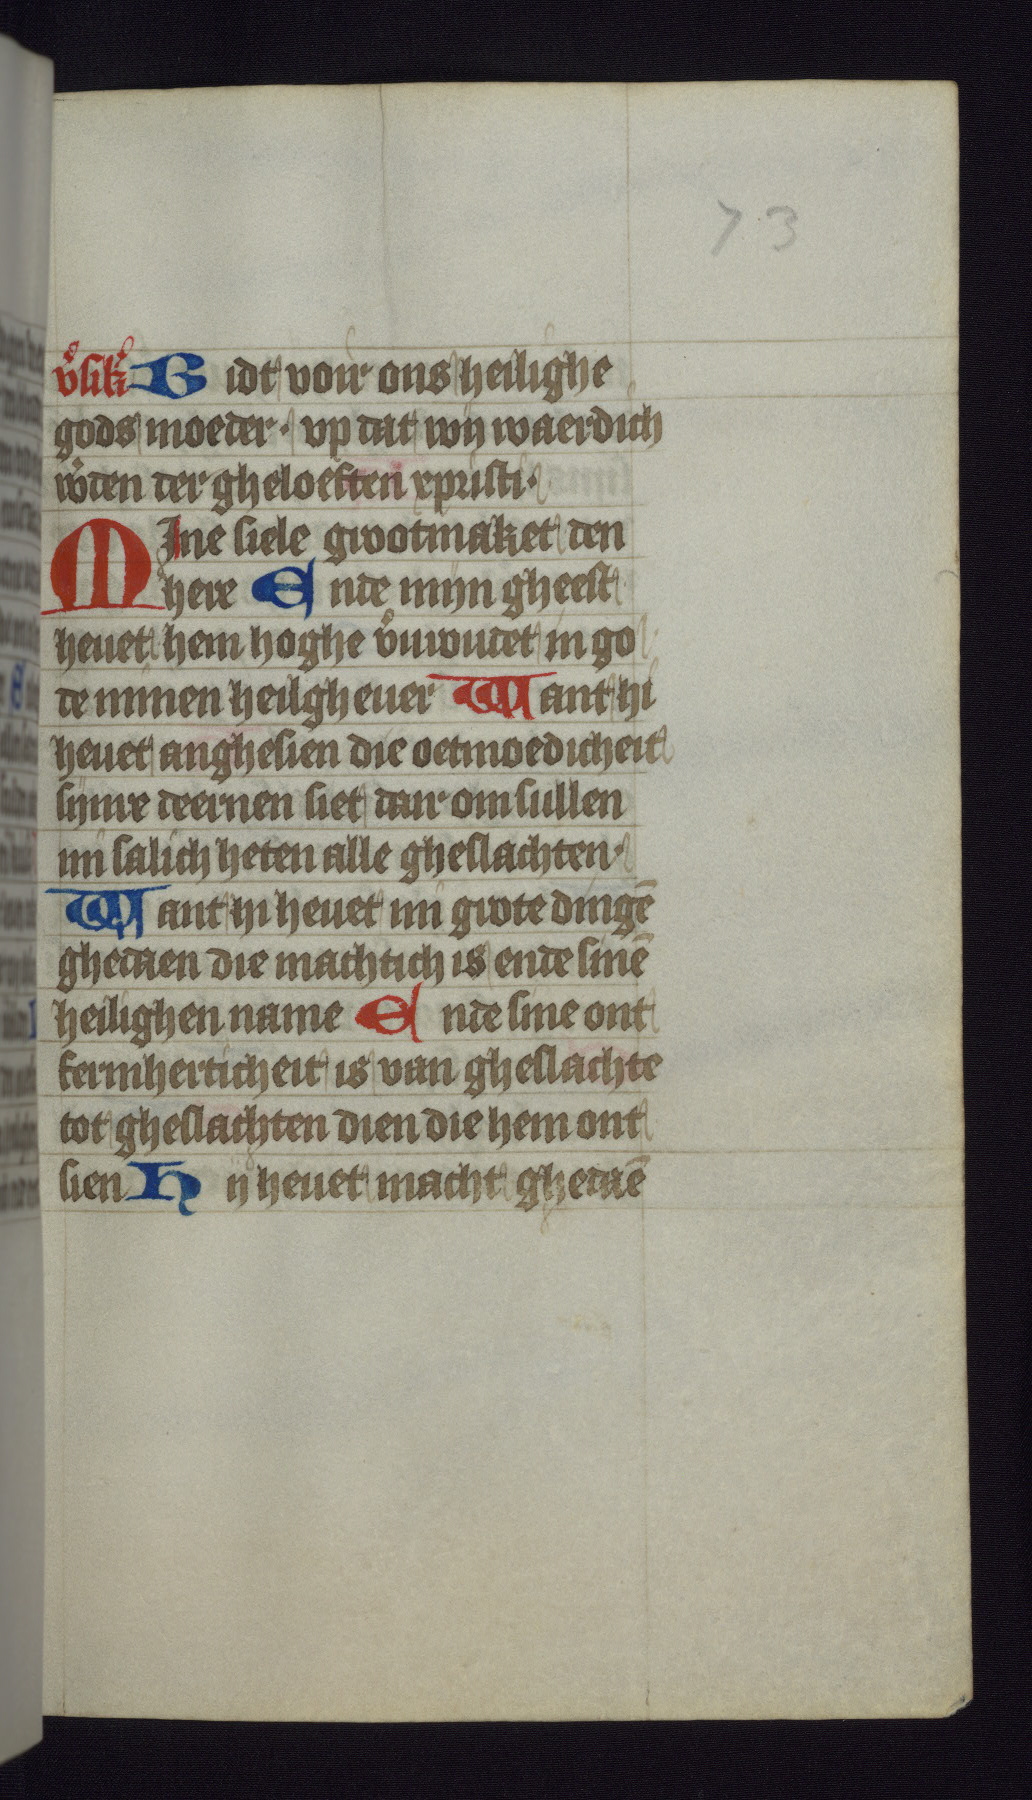 73
v̊sik̊ Bidt voir ons heilighe
gods moeder· vp dat wij waerdich
ẘden der gheloeften xpristi·
MIne siele grootmaket den
here Ende mijn gheest
heuet hem hoghe v̊uroudet in go
de minen heilgheuer Want hi
heuet anghesien die oetmoedicheit
sijnre deernen siet dair om sullen
mi salich heten alle gheslachten·
Want hi heuet mi grote dingē
ghedaen die machtich is ende sinē
heilighen name Ende sine ont
fermherticheit is van gheslachte
tot gheslachten dien die hem ont
sien Hij heuet macht ghedaē